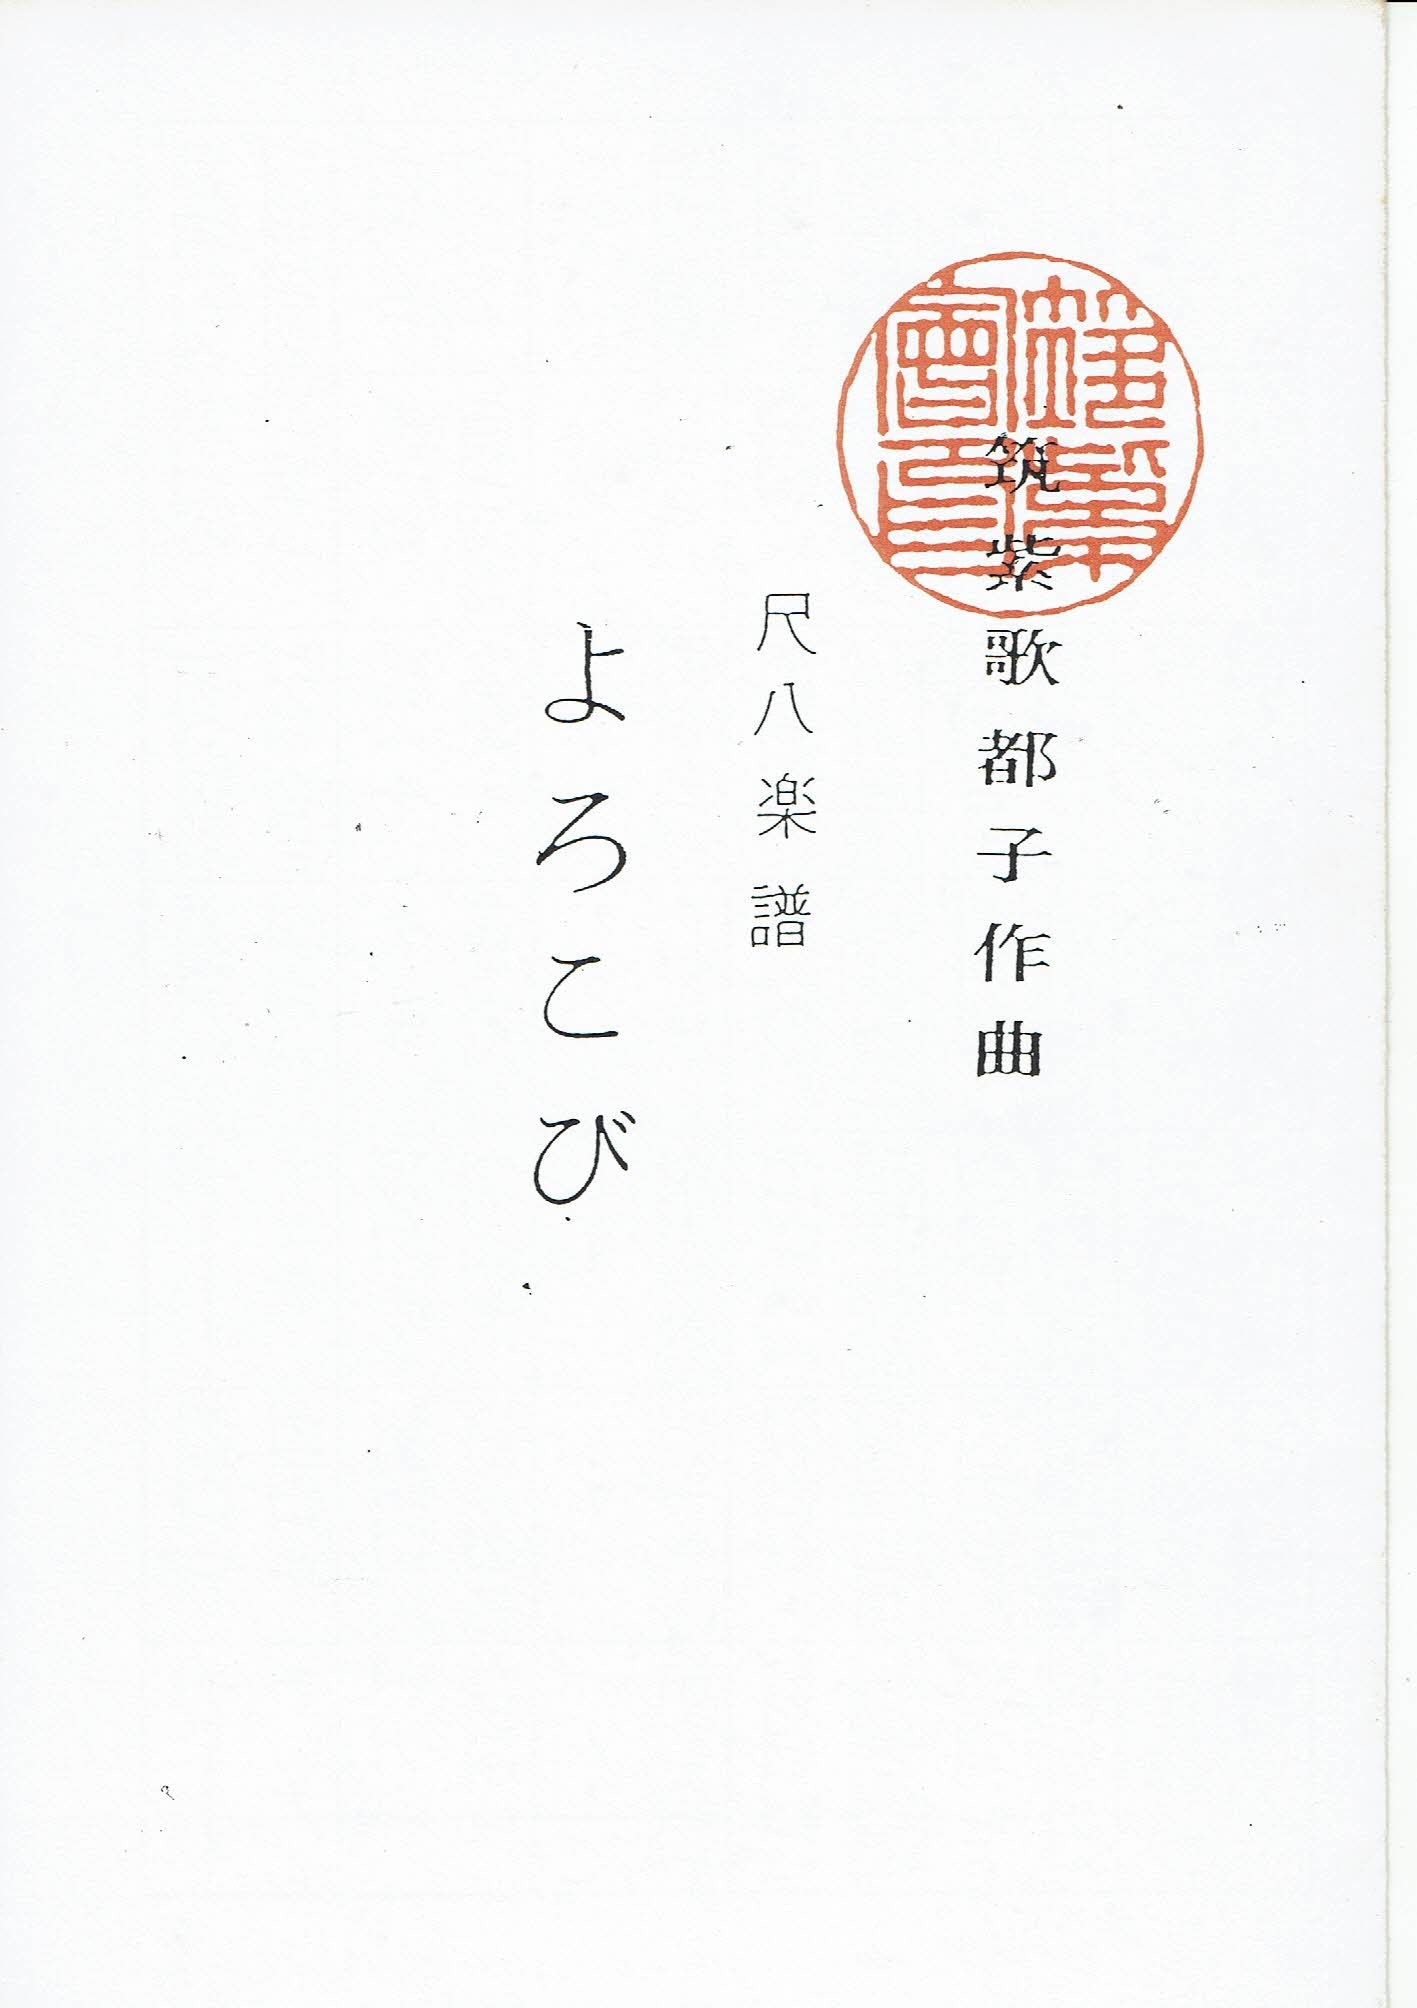 筑紫歌都子作曲
尺八楽譜
よろこび